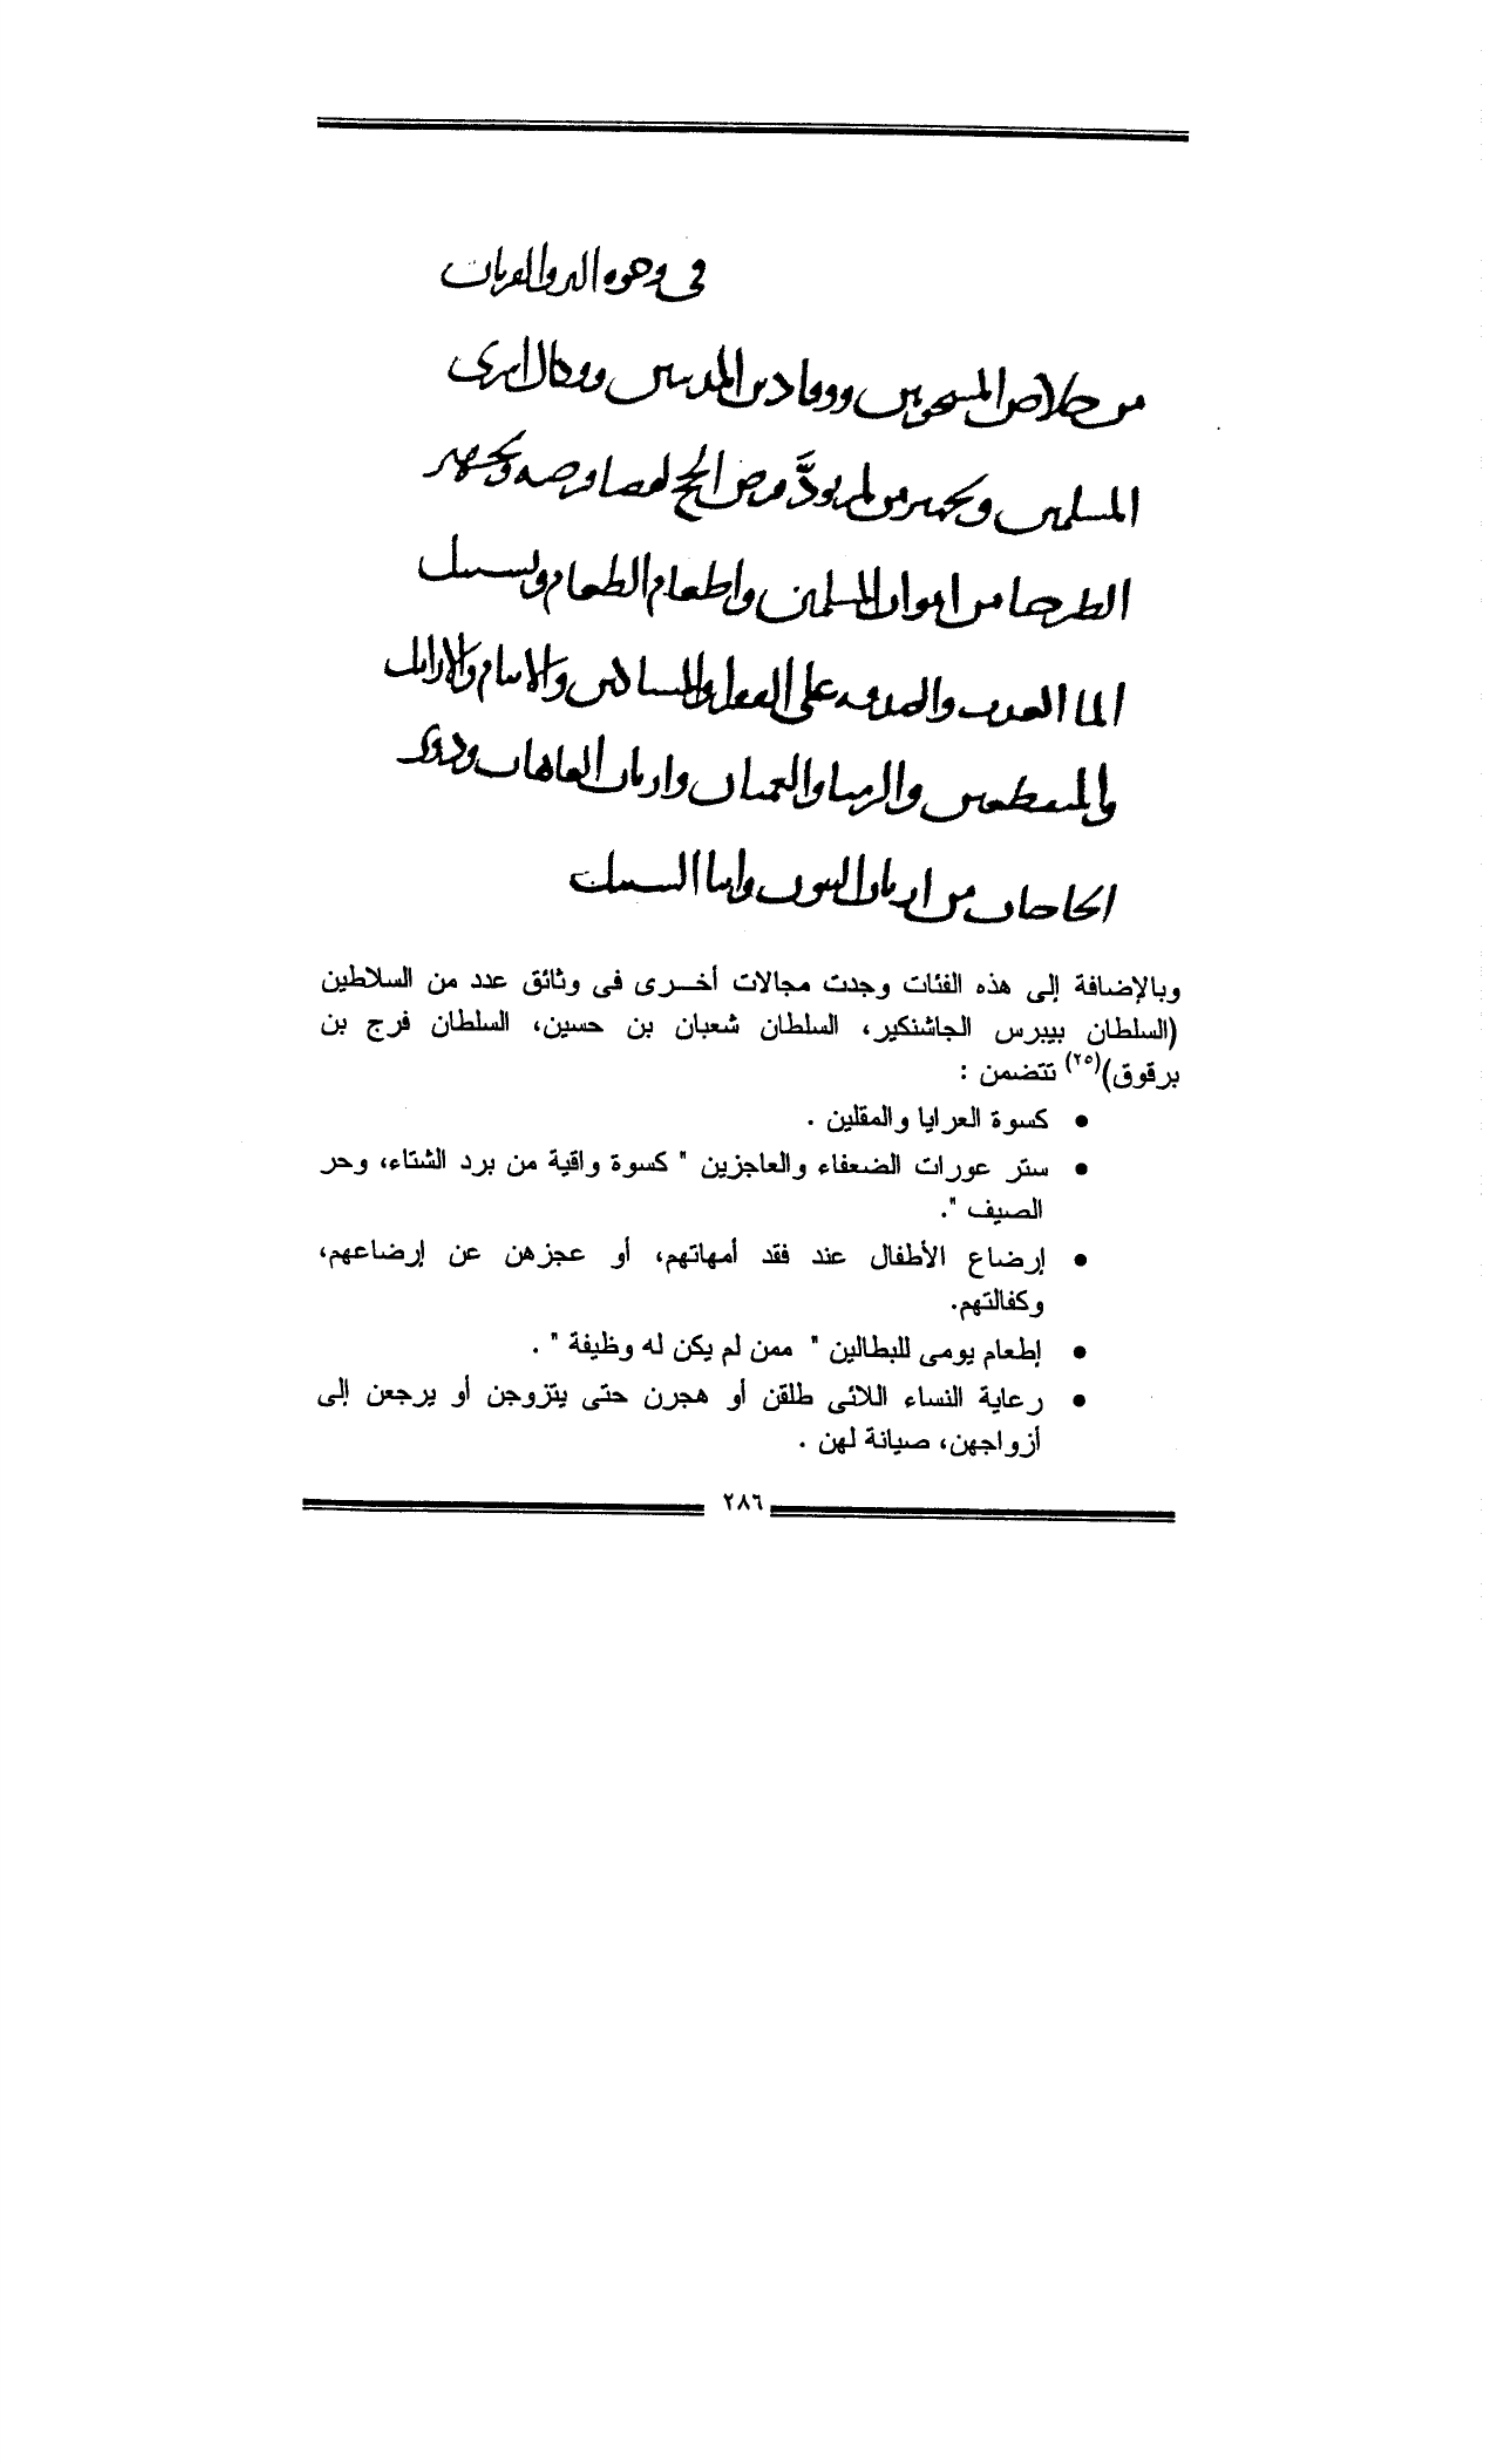 فى وجوه البر والقربات
من خلاص المسجونين ووفا دين المدينين وفكاك اسرى
المسلمين وتجهيز من لم يودَّ فرض الحج لقضا فرضه وتجهيز
الطرحا من اموات المسلمين واطعام الطعام وتسبيل
الما العذب والصدقه على الفقرا والمساكين والايتام والارامل
والمنقطعين والزمنا والعميان وارباب العاهات وذوى
الحاجات من ارباب البيوت وابنا السبيل
وبالإضافة إلى هذه الفئات وجدت مجالات أخــرى فى وثائق عدد من السلاطين
(السلطان بيبرس الجاشنكير، السلطان شعبان بن حسين، السلطان فرج بن
برقوق)(٢٥) تتضمن :
• كسوة العرايا والمقلين .
• ستر عورات الضعفاء والعاجزين " كسوة واقية من برد الشتاء، وحر
الصيف ".
• إرضاع الأطفال عند فقد أمهاتهم، أو عجزهن عن إرضاعهم،
وكفالتهم.
• إطعام يومى للبطالين " ممن لم يكن له وظيفة " .
• رعاية النساء اللائى طلقن أو هجرن حتى يتزوجن أو يرجعن إلى
أزواجهن، صيانة لهن .
٢٨٦